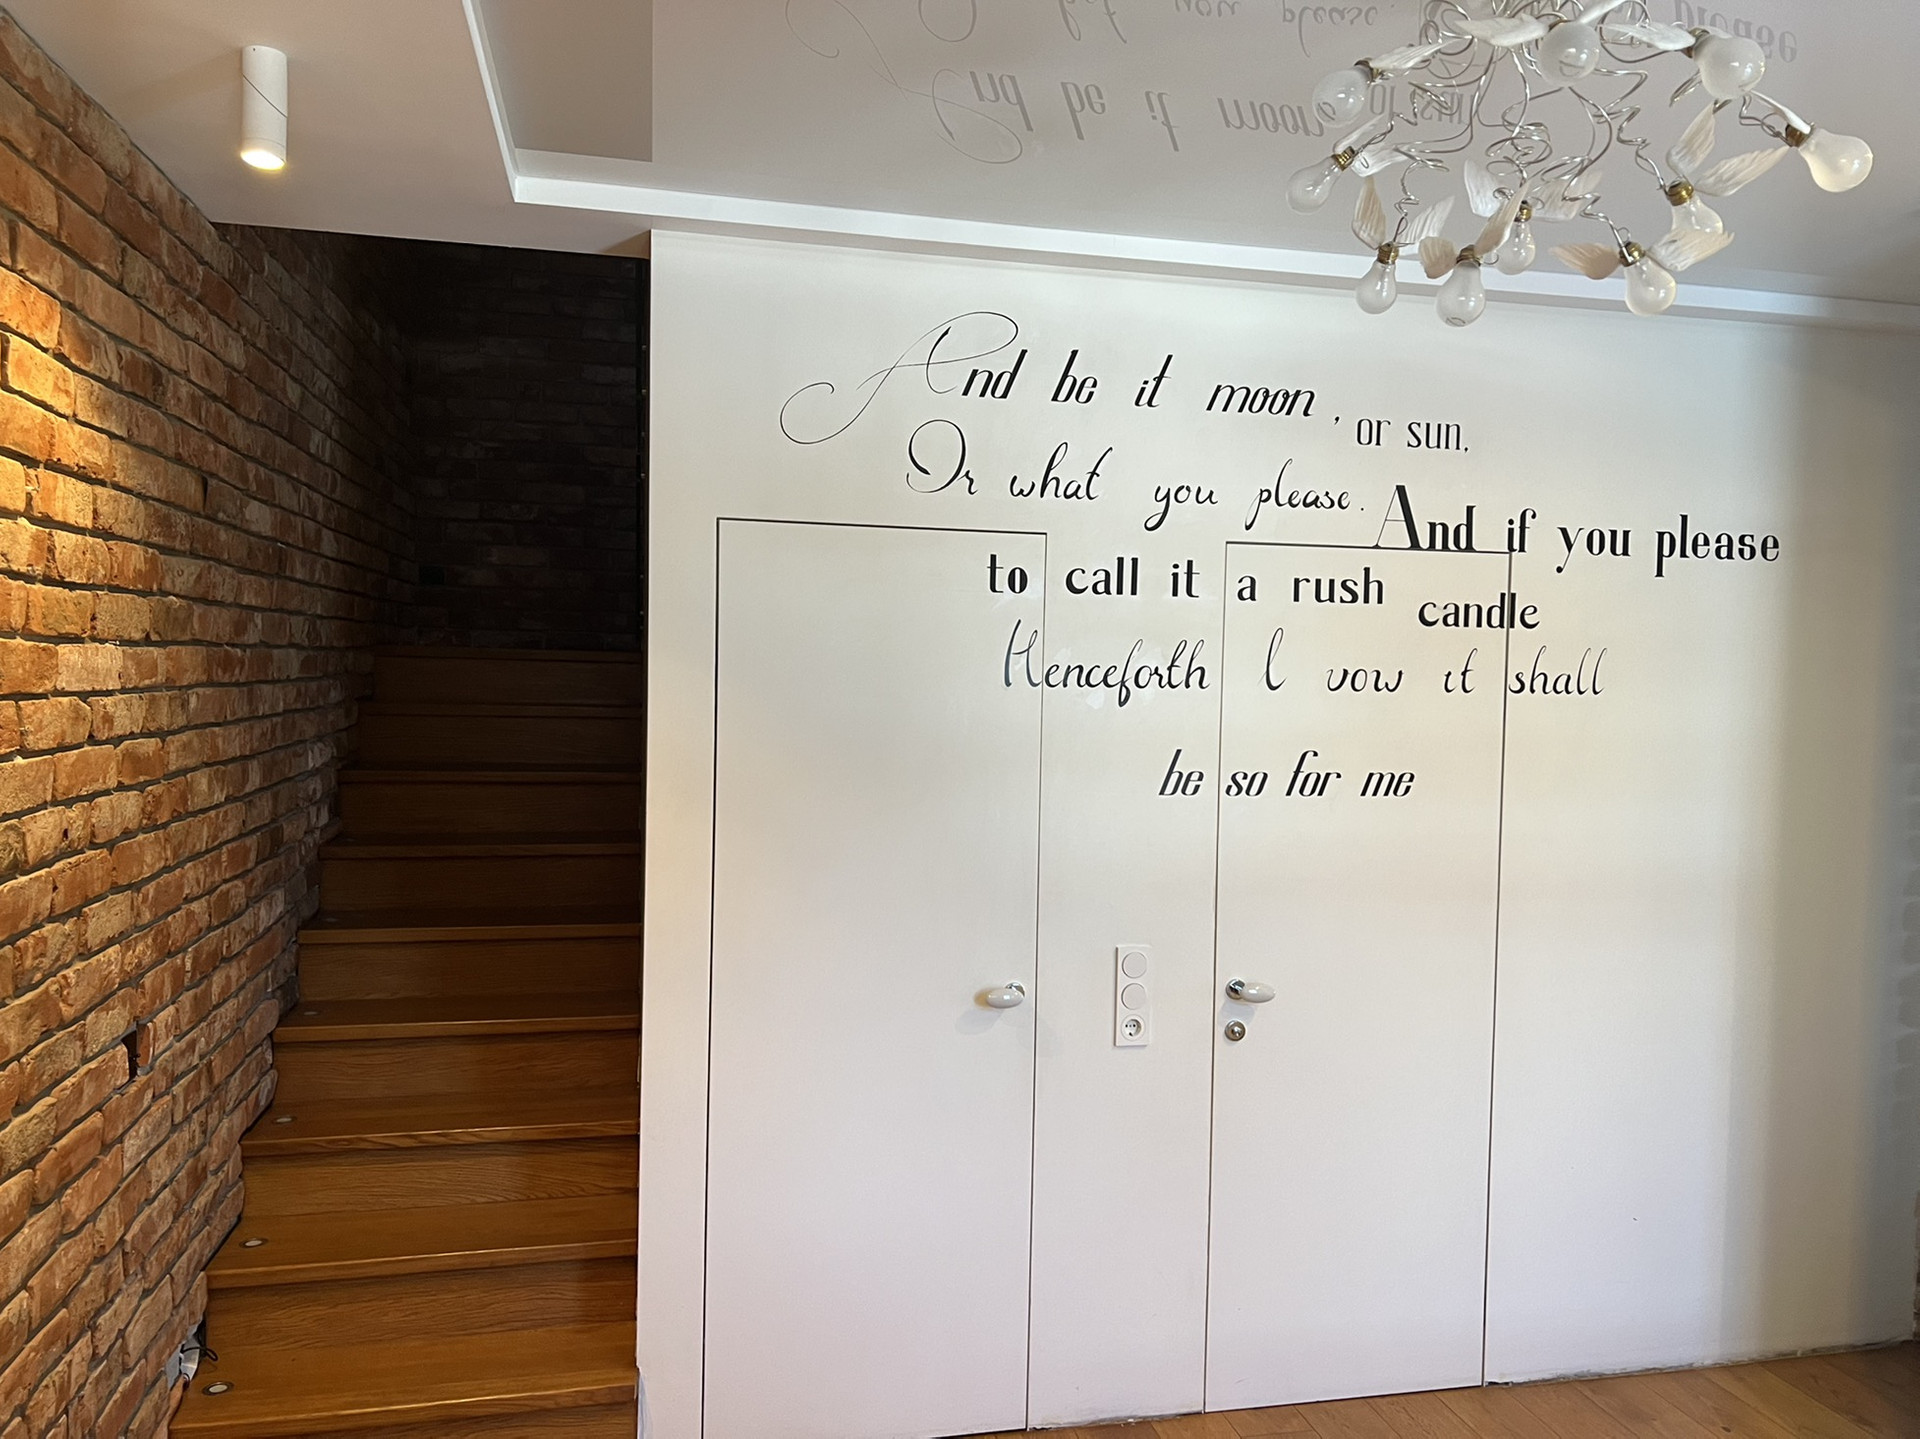 And be it moon, or sun,
Or what you please. And if you please
to call it a rush candle
Henceforth I vow it shall
be so for me